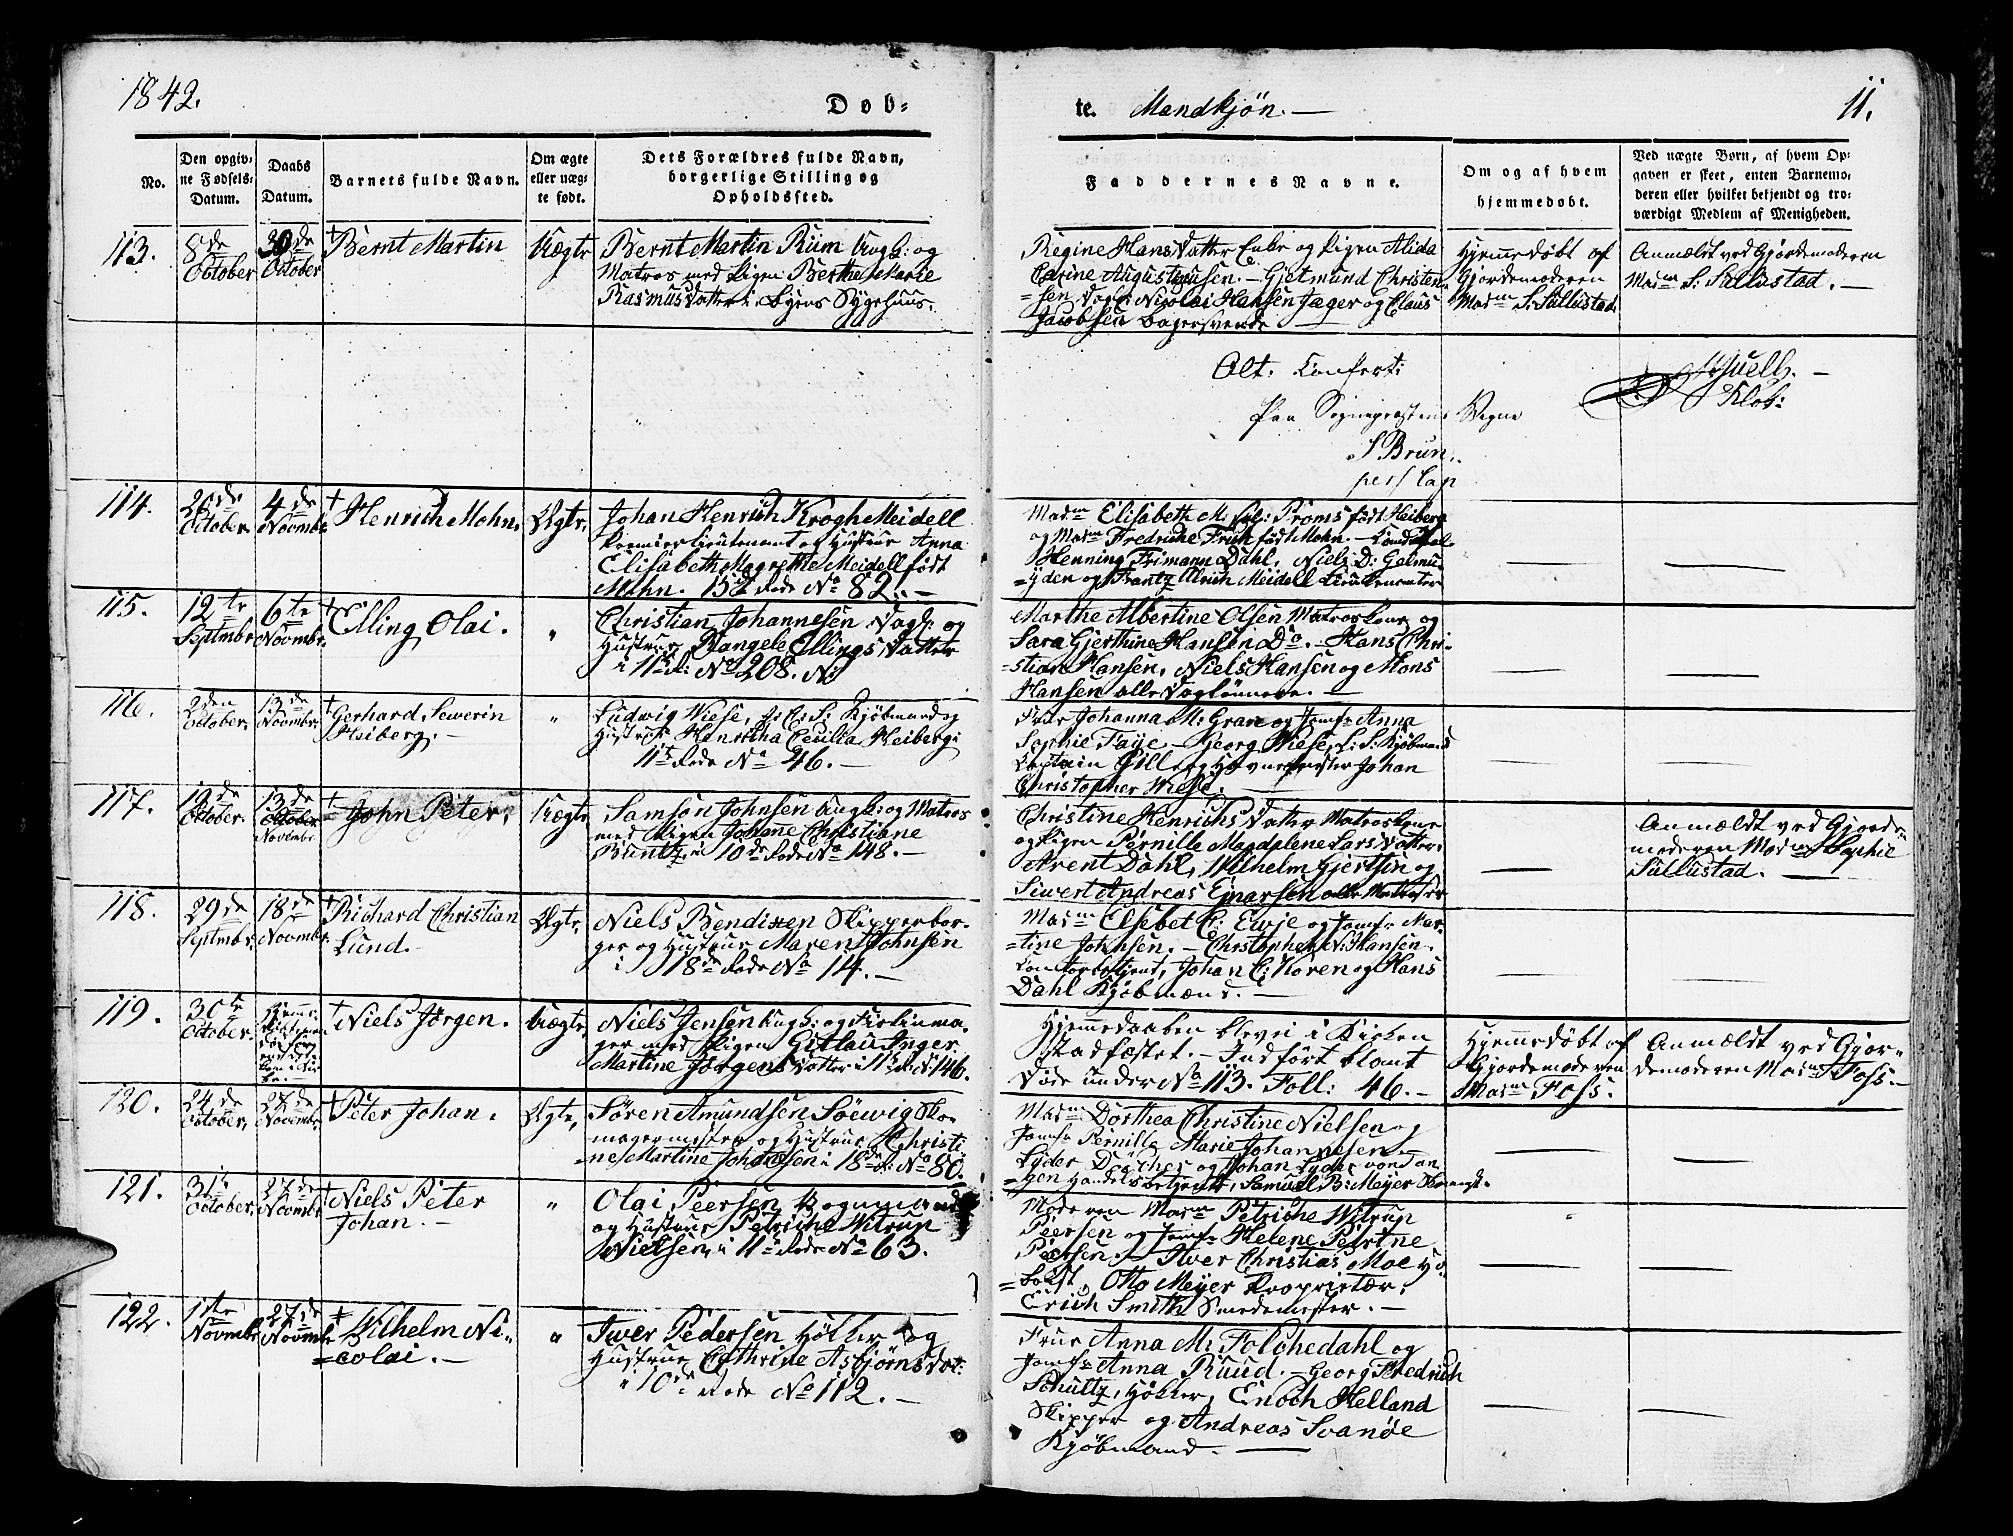 1842.
Døb-
te. Mandkjøn. —
11.
No.
Den opgiv-
ne Fødsels-
Datum.
Daabs
Datum.
Barnets fulde Navn.
Om ægte
eller uæg-
te født.
Dets Forældres fulde Navn,
borgerlige Stilling og
Opholdssted.
Faddernes Navne.
Om og af hvem
hjemmedøbt.
Ved uægte Børn, af hvem Op-
gaven er skeet, enten Barnemo-
deren eller hvilket bekjendt og tro-
værdigt Medlem af Menigheden.
113.
8de
October
30de
October
† Bernt Martin
Uægte
Bernt Martin Rum Ungk: og
Matros med Pigen Berthe Marie
Rasmusdatter i Byens Sygehuus.
Regine Hansdatter Enke og Pigen Alida
Carine Augustinusen. — Gjetmund Christen-
=sen Dagl: Nicolai Hansen Jæger og Claus
Jacobsen Bagersvende —
Hjemmedøbt af
Gjordemoderen
Madm S: Sullustad.
Anmældt ved Gjordemoderen
Madm S: Sullustad. —
Alt: Confert:
Paa Sognepræstens Vegne
S Brun
pers Cap
Klok:
114.
20de
October
4de
Novembr
† Henrich Mohn.
Ægte.
Johan Henrich Krogh Meidell
Premierlieutenant og Hustrue Anna
Elisabeth Magrethe Meidell født
Mohn. 15de Rode No 82. —
Madm Elisabeth M. Proms født Heiberg
og Madm Fredriche Frich født Mohn. —
Henning Frimann Dahl, Niels D: Gelmu-
=yden og Frantz Ulrich Meidell Lieutenanter
115.
12te
Septmbr
6te
Novmbr.
† Elling Olai.
"
Christian Johannesen Dagl: og
Hustrue Rangele Ellingsdatter
i 11te R: No 208. N:
Marthe Albertine Olsen Matroskone og
Sara Gjerthine Hansen Do. — Hans Chri-
=stian Hansen, Niels Hansen og Mons
Hansen alle Daglønnere. —
116.
2den
October.
13de
Novmbr.
† Gerhard Severin
Heiberg. —
"
Ludvig Wiese, J: C: S: Kjøbmand og
Hustrue Henricha Cecilia Heiberg:
11te Rode No 46. —
Frue Johanna M: Gran og Jomfr Anna
Sophie Faye — Georg Wiese, L: S: Kjøbmand
Captain Gill og Havnefoged Johan
Christopher Wiese. —
117.
19de
October.
13de
October
November
† John Peter.
Uægte
Samson Johnsen Ungk: og Matros
med Pigen Johanne Christiane
Buntz i 10de Rode No 148. —
Christine Henrichsdatter Matroskone
og Pigen Pernille Magdalene Larsdatter.
Arent Dahl, Wilhelm Gjertsen og
Siwert Andreas Ejnarsen alle Matroser
Anmældt ved Gjorde-
moderen Madm Sophie
Sullustad. —
118.
29de
Septmbr.
18de
Novmbr.
† Richard Christian
Lund. —
Ægte.
Niels Bendixen Skipperbor-
ger og Hustrue Maren Johnsen
i 18de Rode No 14. —
Madm Elsebet C: Ewje og Jomfr Mar-
=tine Johnsen. — Christopher N: Hansen
Contorbetjent, Johan C: Koren og Hans
Dahl Kjøbmænd. —
119.
30te
October.
† Niels Jørgen.
Uægte.
Niels Jensen Ungk: og
ger med Pigen Gitlau Inger
Martine Jørgensdatter i 11te R: No 146.
Hjemmedaaben blev i Kirken
stadfæstet. — Indført blant
Døde under No 113. Foll: 46. —
Hjemmedøbt af
Gjordemoderen
Madm Foss.
Anmældt ved Gjor-
demoderen Madm Foss. —
120.
24de
October.
27de
Novembr.
† Peter Johan.
Ægte.
Søren Amundsen Söewig Sko-
magermester og Hustrue Christi-
=ne Martine Johannesen i 18de R: No 80.
Madm Dorthea Christine Nielsen og
Jomfr Pernille Marie Johannesen —
Lyder Döscher og Johan Lyder von
=gen Handelsbetjente, Samuel B: Meyer
121.
31te
October.
27de
Novmbr
† Niels Peter
Johan. —
"
Olai Peersen Bogmand
og Hustrue Petriche Witrup
Nielsen, i 11te Rode No 63.
Moderen Madm Petriche Witrup
Peersen og Jomfr Helene Petrine
Peersen. — Iver Christias Moe
Otto Meyer Proprietær,
Erich Smith Smedemester. —
122.
1ste
Novmbr
27de
Novmbr
† Wilhelm Ni-
=colai. —
"
Iver Pedersen Høkker og
Hustrue Cathrine Asbjørnsdat:
i 10de Rode No 112. —
Frue Anna M: Folchedahl og
Jomfr Anna Ruud. — Georg Fredrich
Schultz, Høkker, Enoch Helland
Skipper og Andreas Svanöe
Kjøbmand. —